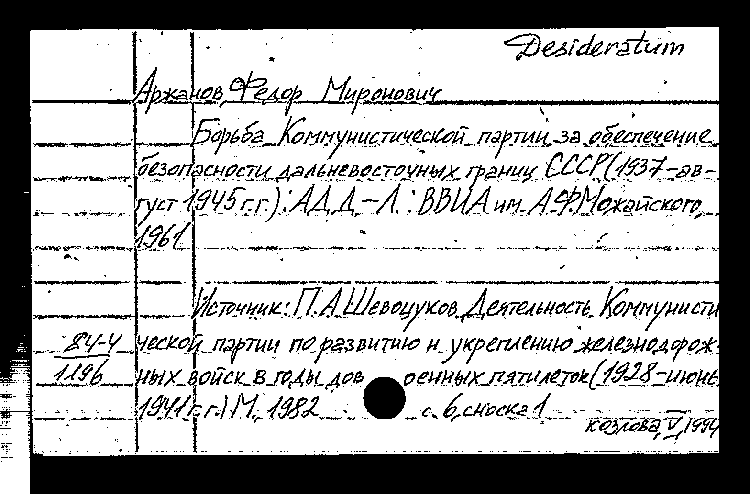 Desideratum
Аржанов, Федор Миронович
Борьба Коммунистической партии за обеспечение
безопасности дальневосточных границ СССР (1937-ав-
густ 1945 г.г.): АДД - Л.: ВВИА им. А.Ф.Можайского,
1961
Источник: П.А Шевоцуков Деятельность Коммунисти
84-4 ческой партии по развитию и укреплению железнодорож-
1196 ных войск в годы довоенных пятилеток (1928-июнь
1941 г.г.) М, 1982 с. 6, сноска 1
козлова, V, 1994